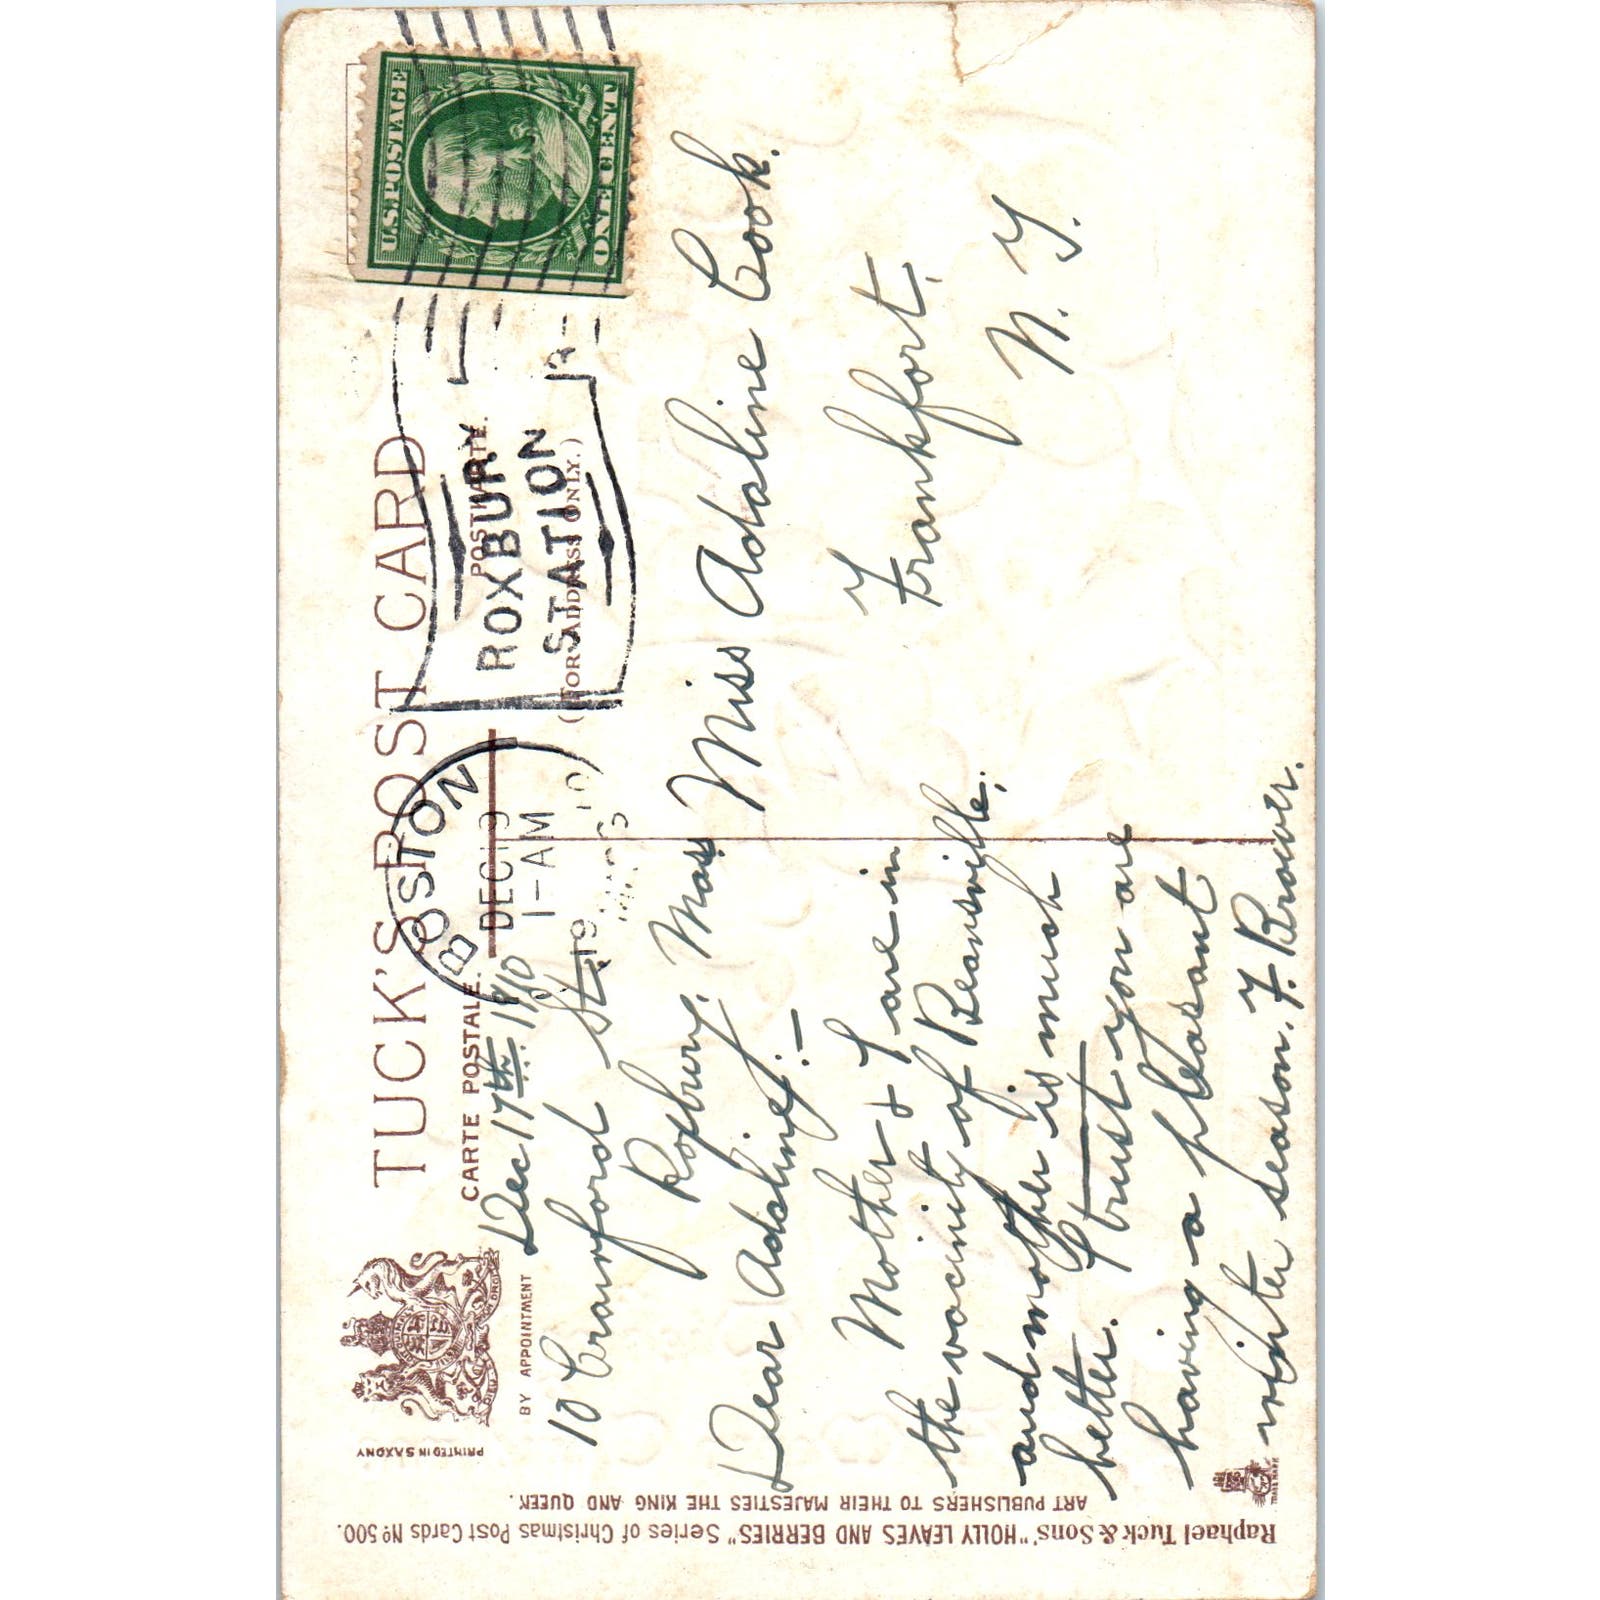 TUCK'S POST CARD
CARTE POSTALE.
POSTKARTE.
(FOR ADDRESS ONLY.)
BY APPOINTMENT
PRINTED IN SAXONY
BOSTON
DEC 19
1-AM
19 10
MASS
ROXBURY
STATION
U.S. POSTAGE
ONE CENT
Dec 17th. 1910
10 Crawford St.
Roxbury. Mass
Dear Adaline:—
Mother & I are in
the vicinity of Beansville,
and mother is much
better. I trust you are
having a pleasant
winter season. F. Brower.
Miss Adaline Cook.
Frankfort,
N. Y.
Raphael Tuck & Sons' "HOLLY LEAVES AND BERRIES" Series of Christmas Post Cards No 500.
ART PUBLISHERS TO THEIR MAJESTIES THE KING AND QUEEN.
TRADE MARK